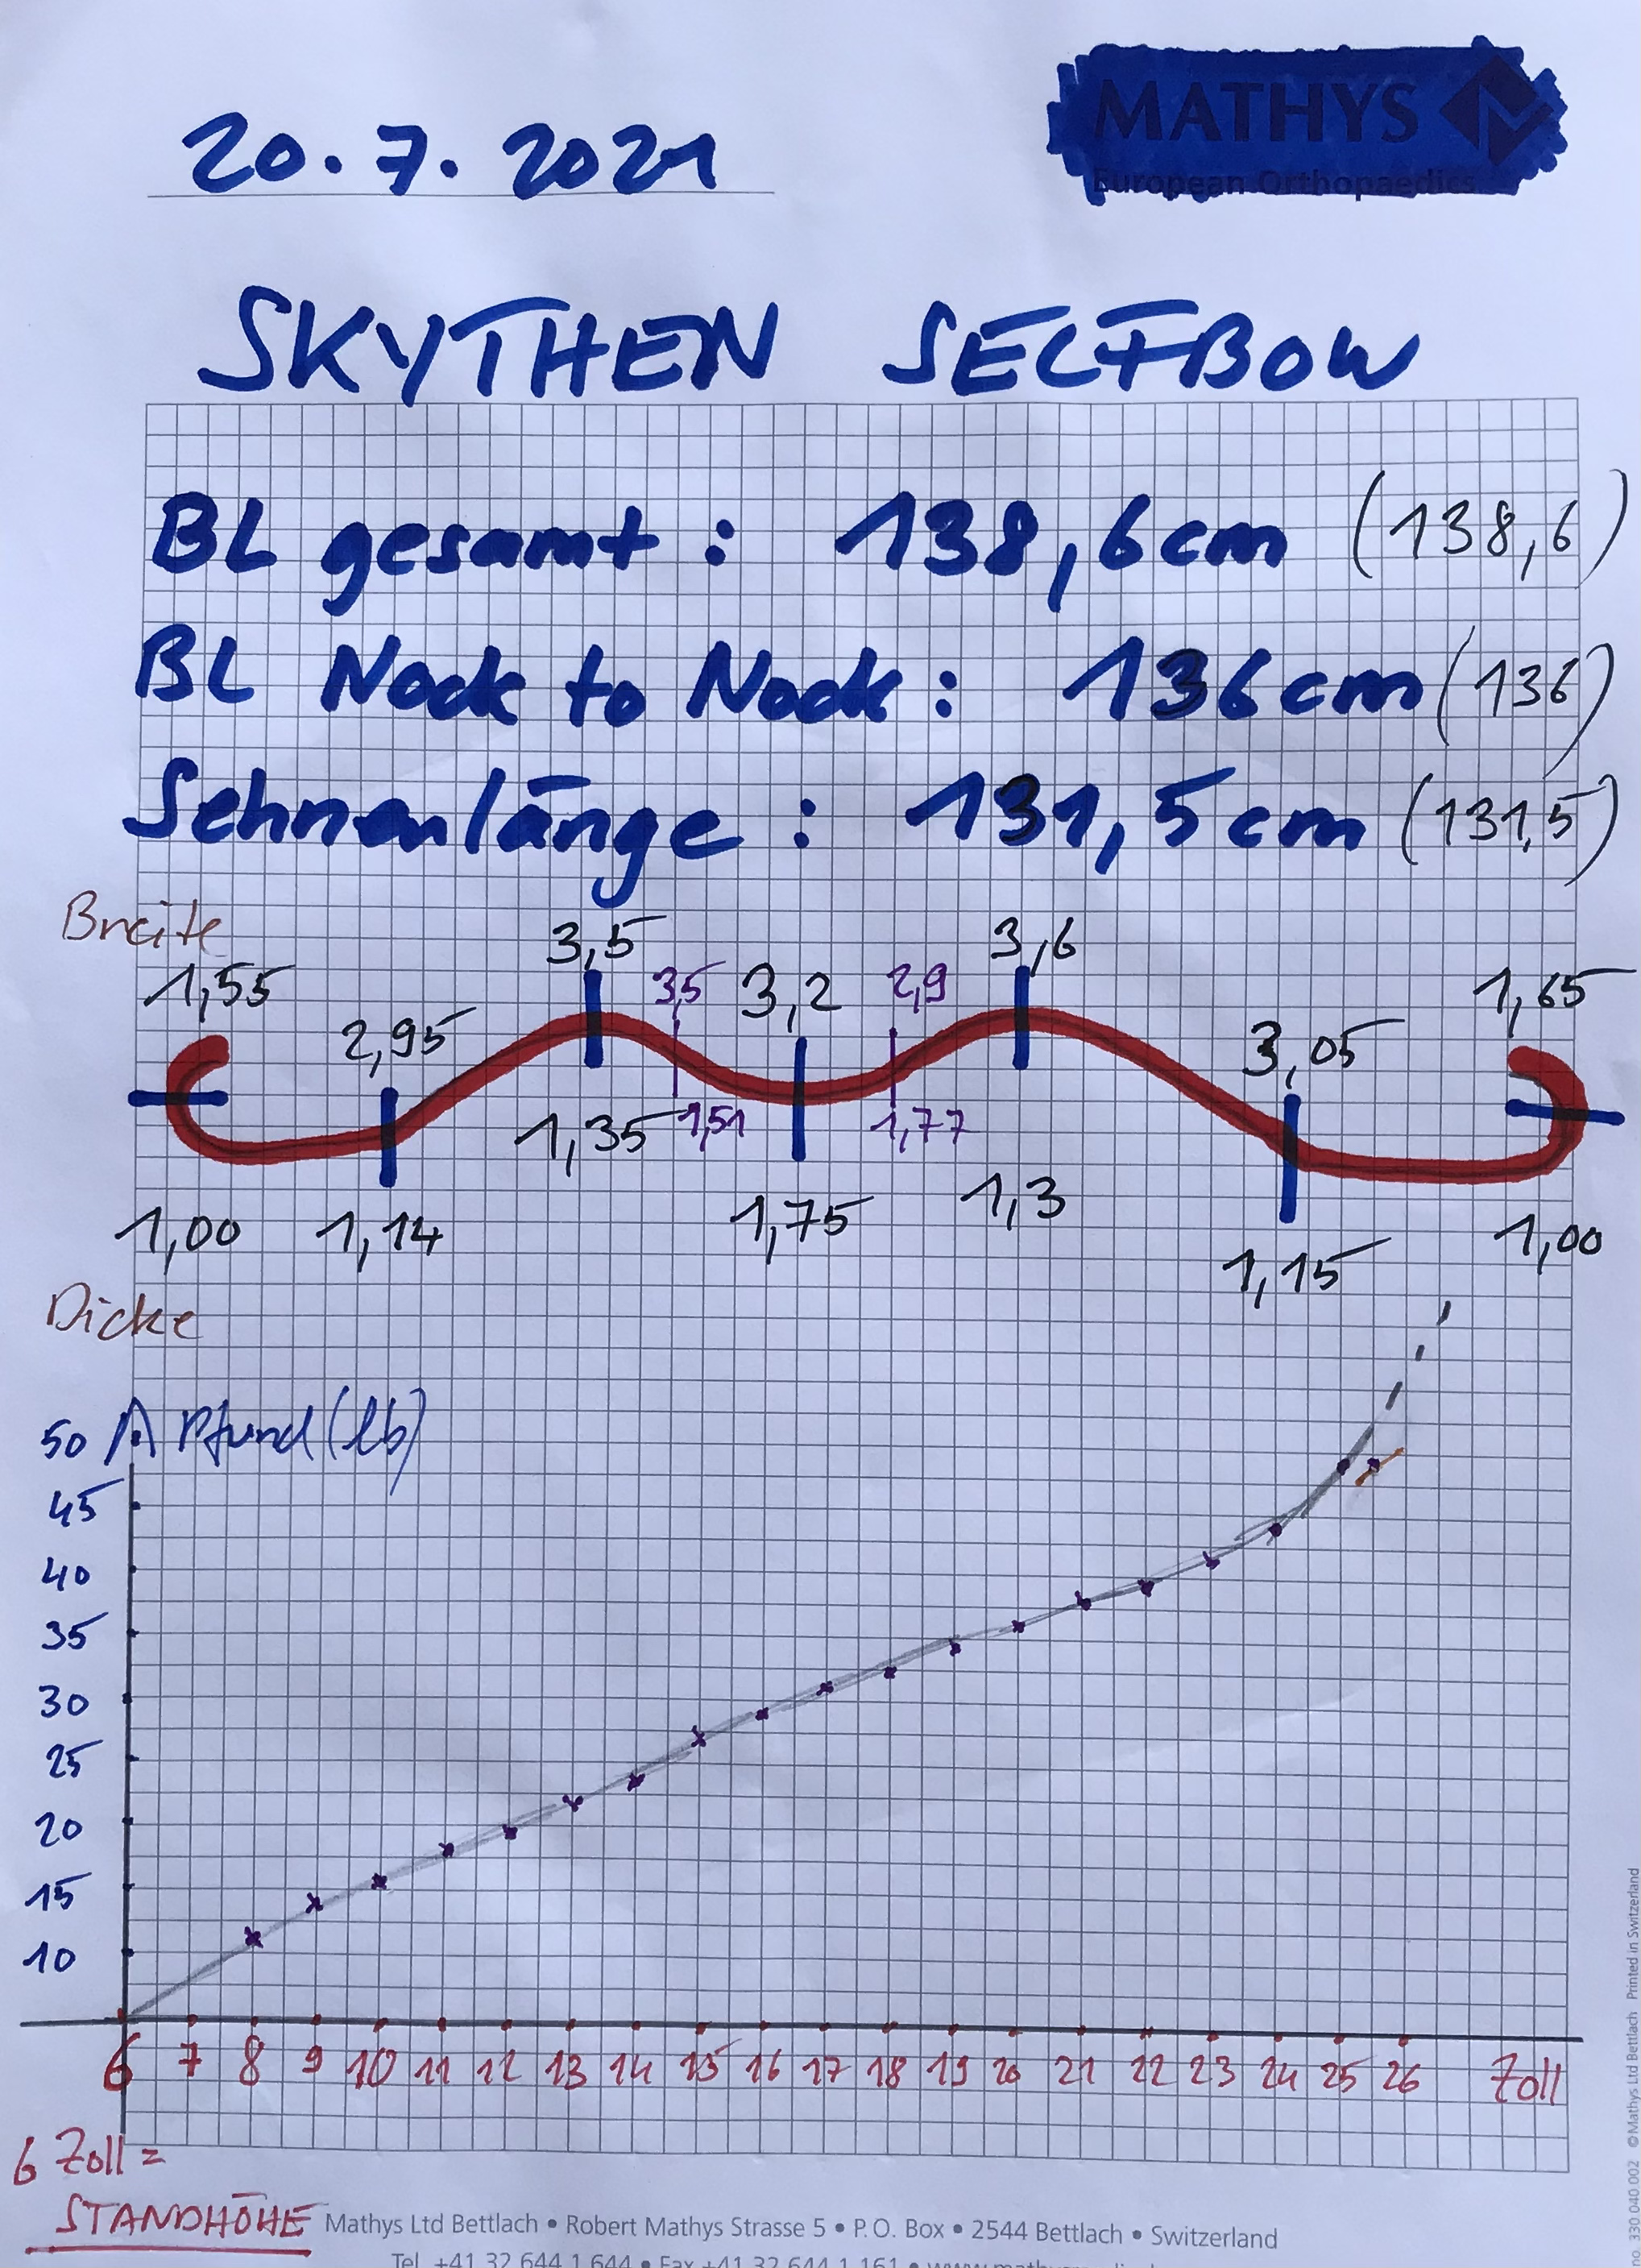 MATHYS
European Orthopaedics
20.7.2021
SKYTHEN SELFBOW
BL gesamt : 138,6cm (138,6)
BL Nock to Nock : 136cm (136)
Sehnenlänge : 131,5cm (131,5)
Breite
1,55 2,95 3,5 3,5 3,2 2,9 3,6 3,05 1,65
1,00 1,14 1,35 1,51 1,75 1,77 1,3 1,15 1,00
Dicke
50 Pfund (lb)
45
40
35
30
25
20
15
10
6 7 8 9 10 11 12 13 14 15 16 17 18 19 20 21 22 23 24 25 26 Zoll
6 Zoll =
STANDHÖHE
Mathys Ltd Bettlach • Robert Mathys Strasse 5 • P.O. Box • 2544 Bettlach • Switzerland
Tel. +41 32 644 1 644 • Fax +41 32 644 1 161
no. 330 040 002 © Mathys Ltd Bettlach Printed in Switzerland